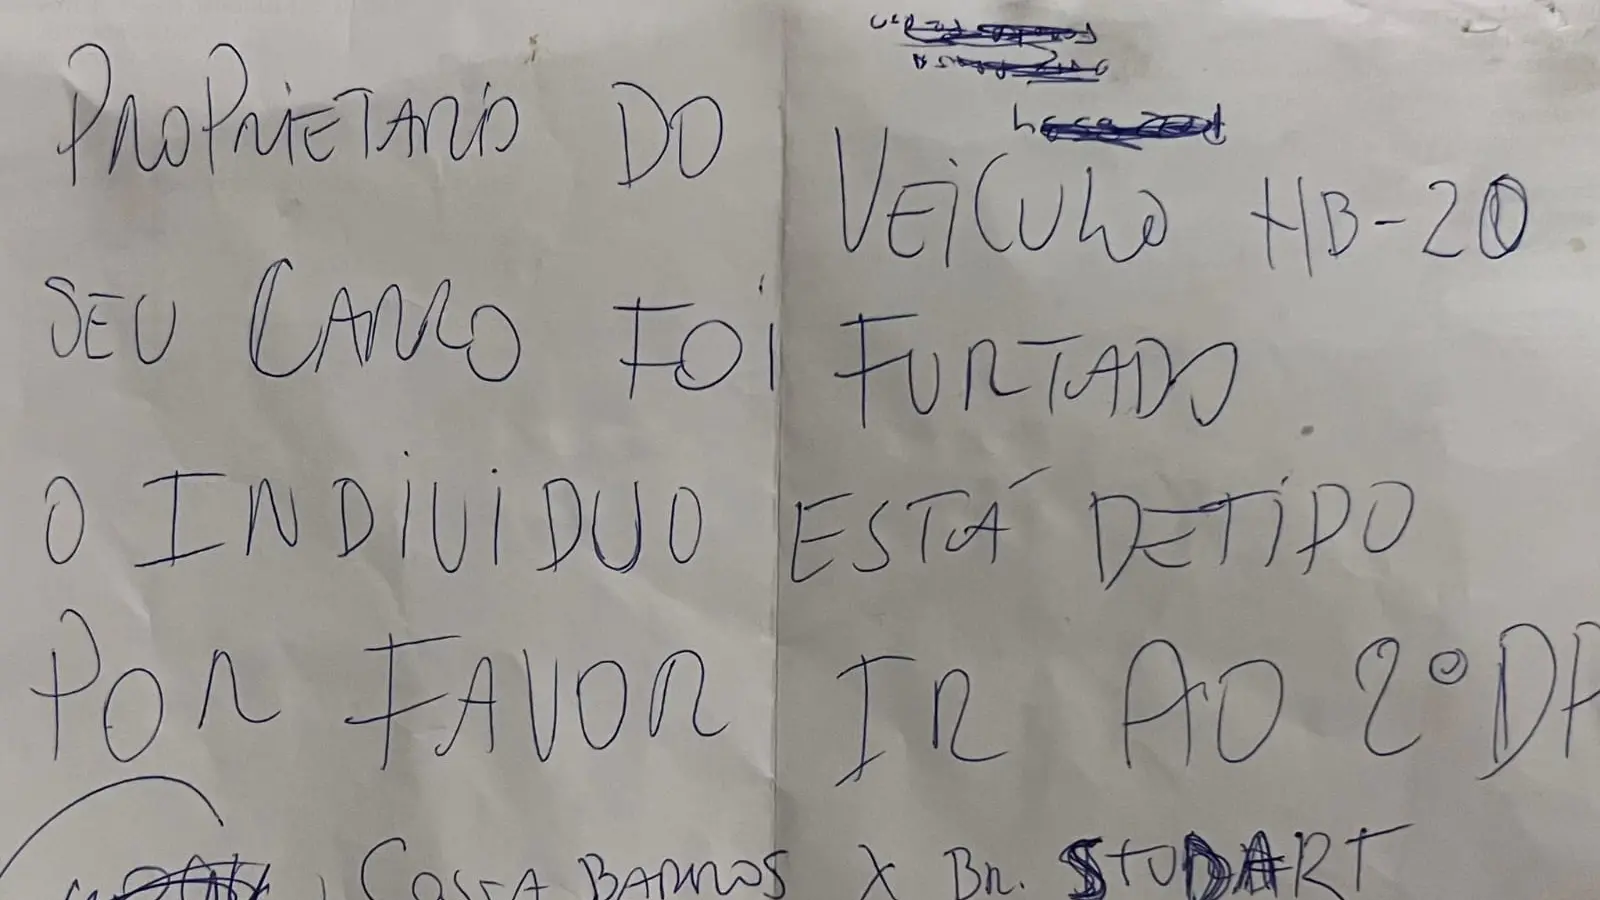 PROPRIETARIO DO VEICULO HB-20
SEU CARRO FOI FURTADO.
O INDIVIDUO ESTÁ DETIDO
POR FAVOR IR AO 2º DP
, COSTA BARROS X BR. STUDART